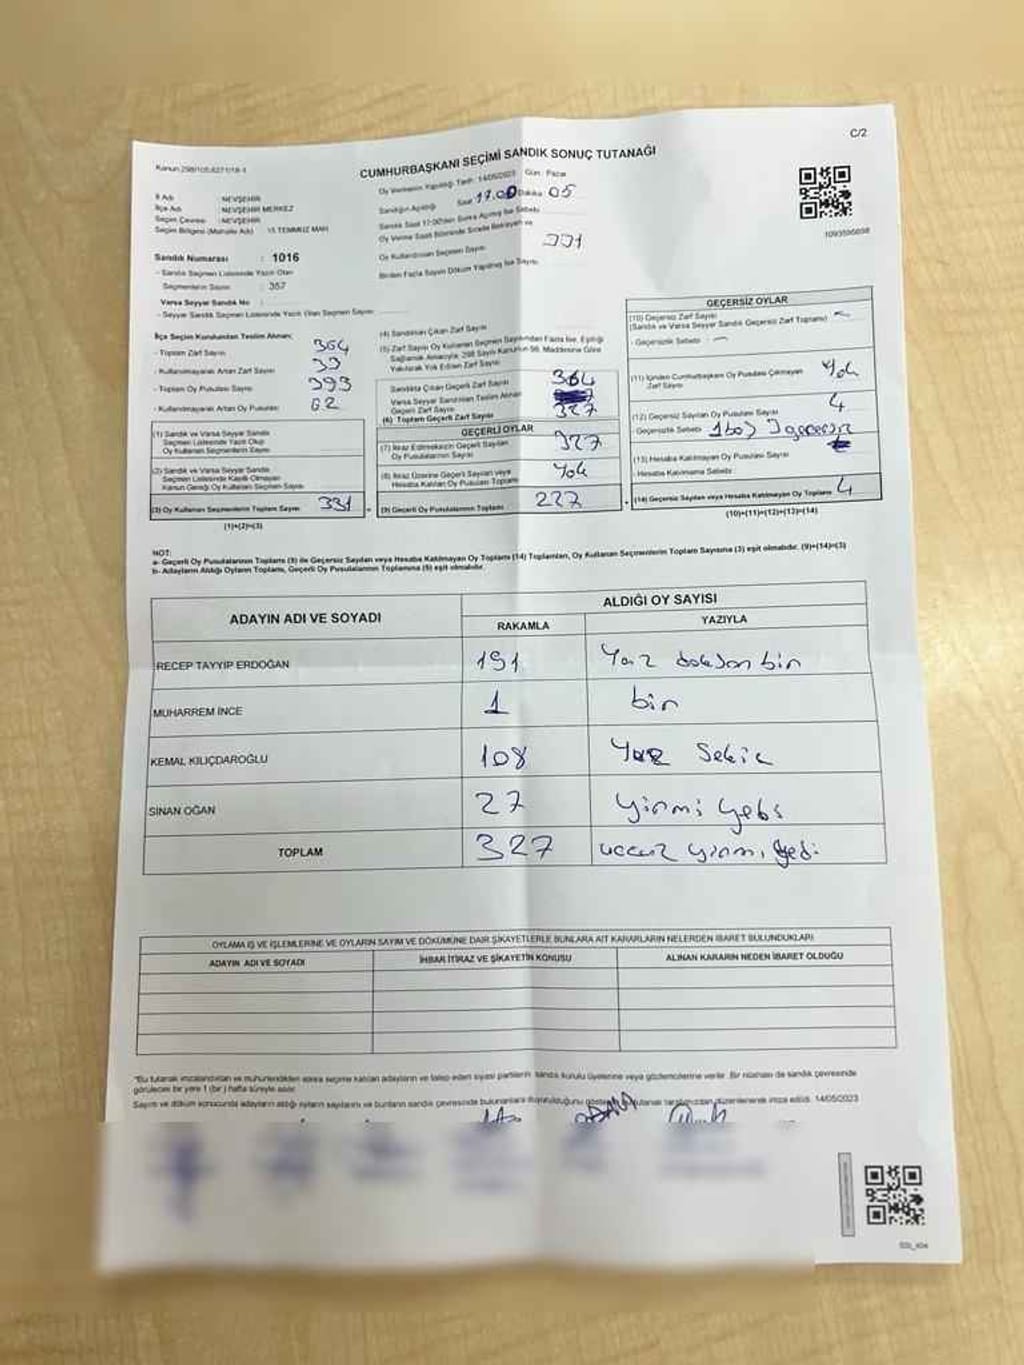 C/2
Kanun:298/105,6271/18-1
CUMHURBAŞKANI SEÇİMİ SANDIK SONUÇ TUTANAĞI
İl Adı : NEVŞEHİR
İlçe Adı : NEVŞEHİR MERKEZ
Seçim Çevresi : NEVŞEHİR
Seçim Bölgesi (Mahalle Adı) 15 TEMMUZ MAH
Oy Vermenin Yapıldığı Tarih: 14/05/2023 Gün: Pazar
Sandığın Açıldığı Saat 17.00 Dakika: 05
Sandık Saat 17:00'den Sonra Açılmış İse Sebebi
Oy Verme Saati Bitiminde Sırada Bekleyen ve
Oy Kullandırılan Seçmen Sayısı 331
Birden Fazla Sayım Döküm Yapılmış İse Sayısı
1093506898
Sandık Numarası : 1016
- Sandık Seçmen Listesinde Yazılı Olan
Seçmenlerin Sayısı 357
Varsa Seyyar Sandık No :
- Seyyar Sandık Seçmen Listesinde Yazılı Olan Seçmen Sayısı
İlçe Seçim Kurulundan Teslim Alınan;
- Toplam Zarf Sayısı 364
- Kullanılmayarak Artan Zarf Sayısı 33
- Toplam Oy Pusulası Sayısı 393
- Kullanılmayarak Artan Oy Pusulası 62
(1) Sandık ve Varsa Seyyar Sandık
Seçmen Listesinde Yazılı Olup
Oy Kullanan Seçmenlerin Sayısı
(2) Sandık ve Varsa Seyyar Sandık
Seçmen Listesinde Kayıtlı Olmayan
Kanun Gereği Oy Kullanan Seçmen Sayısı
(3) Oy Kullanan Seçmenlerin Toplam Sayısı 331
(1)+(2)=(3)
(4) Sandıktan Çıkan Zarf Sayısı
(5) Zarf Sayısı Oy Kullanan Seçmen Sayısından Fazla İse, Eşitliği
Sağlamak Amacıyla, 298 Sayılı Kanun'un 98. Maddesine Göre
Yakılarak Yok Edilen Zarf Sayısı
Sandıkta Çıkan Geçerli Zarf Sayısı 364
Varsa Seyyar Sandıktan Teslim Alınan
Geçerli Zarf Sayısı
(6) Toplam Geçerli Zarf Sayısı 327
GEÇERLİ OYLAR
(7) İtiraz Edilmeksizin Geçerli Sayılan
Oy Pusulalarının Sayısı 327
(8) İtiraz Üzerine Geçerli Sayılan veya
Hesaba Katılan Oy Pusulası Toplamı Yok
(9) Geçerli Oy Pusulalarının Toplamı 227
GEÇERSİZ OYLAR
(10) Geçersiz Zarf Sayısı
(Sandık ve Varsa Seyyar Sandık Geçersiz Zarf Toplamı)
- Geçersizlik Sebebi
(11) İçinden Cumhurbaşkanı Oy Pusulası Çıkmayan
Zarf Sayısı Yok
(12) Geçersiz Sayılan Oy Pusulası Sayısı 4
- Geçersizlik Sebebi 1 boş 3 geçersiz
(13) Hesaba Katılmayan Oy Pusulası Sayısı
- Hesaba Katılmama Sebebi
(14) Geçersiz Sayılan veya Hesaba Katılmayan Oy Toplamı 4
(10)+(11)+(12)+(13)=(14)
NOT:
a- Geçerli Oy Pusulalarının Toplamı (9) ile Geçersiz Sayılan veya Hesaba Katılmayan Oy Toplamı (14) Toplamları, Oy Kullanan Seçmenlerin Toplam Sayısına (3) eşit olmalıdır. (9)+(14)=(3)
b- Adayların Aldığı Oyların Toplamı, Geçerli Oy Pusulalarının Toplamına (9) eşit olmalıdır.
ADAYIN ADI VE SOYADI
ALDIĞI OY SAYISI
RAKAMLA YAZIYLA
RECEP TAYYİP ERDOĞAN 191 Yüz doksan bin
MUHARREM İNCE 1 bin
KEMAL KILIÇDAROĞLU 108 Yüz Sekiz
SİNAN OĞAN 27 Yirmi Yedi
TOPLAM 327 üçyüz yirmi yedi
OYLAMA İŞ VE İŞLEMLERİNE VE OYLARIN SAYIM VE DÖKÜMÜNE DAİR ŞİKAYETLERLE BUNLARA AİT KARARLARIN NELERDEN İBARET BULUNDUKLARI
ADAYIN ADI VE SOYADI İHBAR İTİRAZ VE ŞİKAYETİN KONUSU ALINAN KARARIN NEDEN İBARET OLDUĞU
"Bu tutanak imzalandıktan ve mühürlendikten sonra seçime katılan adayların ve talep eden siyasi partilerin sandık kurulu üyelerine veya gözlemcilerine verilir. Bir nüshası da sandık çevresinde
görülecek bir yere 1 (bir) hafta süreyle asılır.
Sayım ve döküm sonucunda adayların aldığı oyların sayılarını ve bunların sandık çevresinde bulunanlara duyurulduğunu gösteren bu tutanak tarafımızdan düzenlenerek imza edildi. 14/05/2023